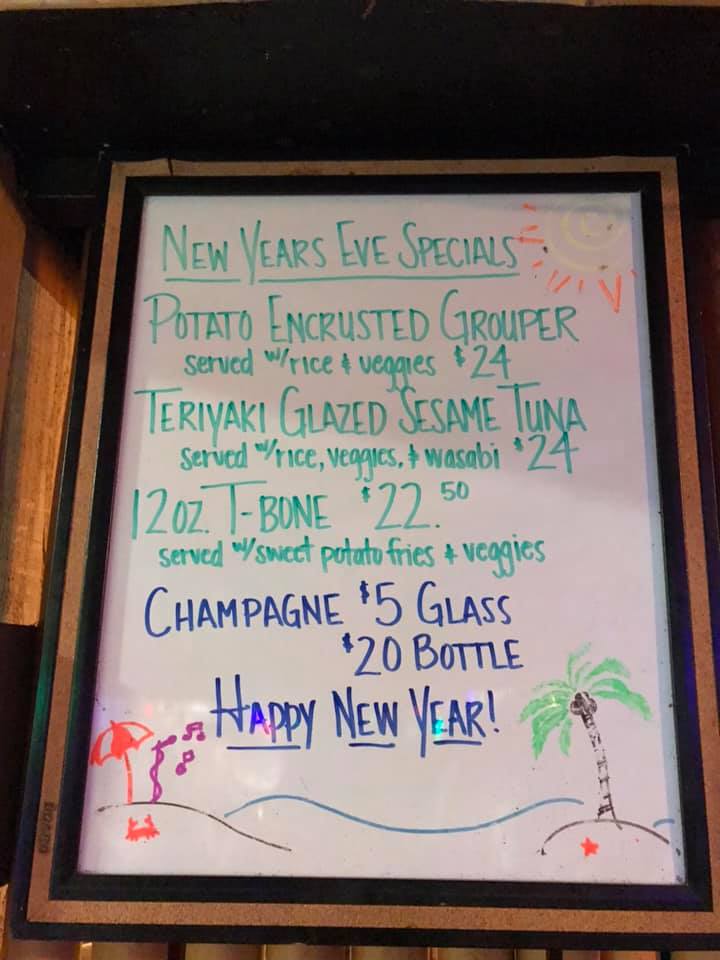 NEW YEARS EVE SPECIALS
POTATO ENCRUSTED GROUPER
served w/rice & veggies $24
TERIYAKI GLAZED SESAME TUNA
served w/rice, veggies, & wasabi $24
12oz. T-BONE $22.50
served w/sweet potato fries & veggies
CHAMPAGNE $5 GLASS
$20 BOTTLE
HAPPY NEW YEAR!